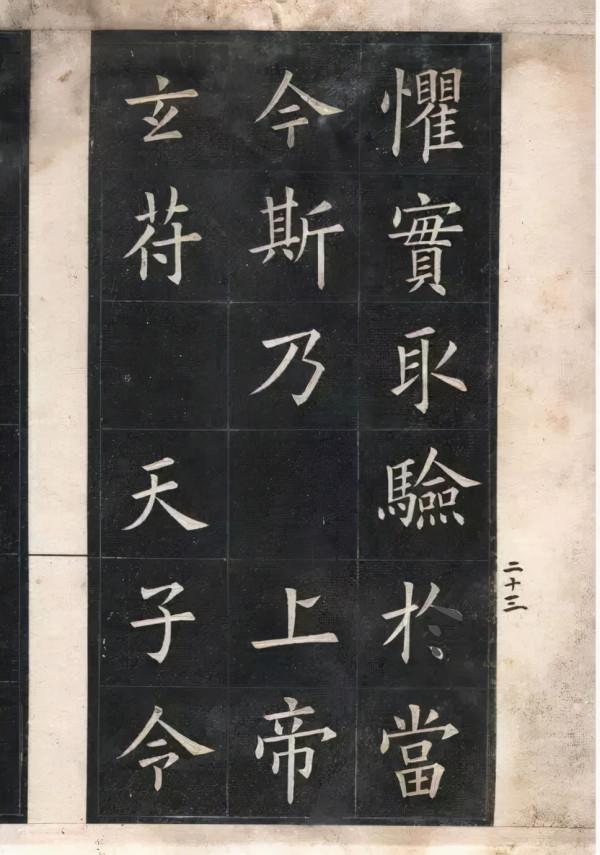 懼實取驗於當
今斯乃上帝
玄荷天子令
二十三